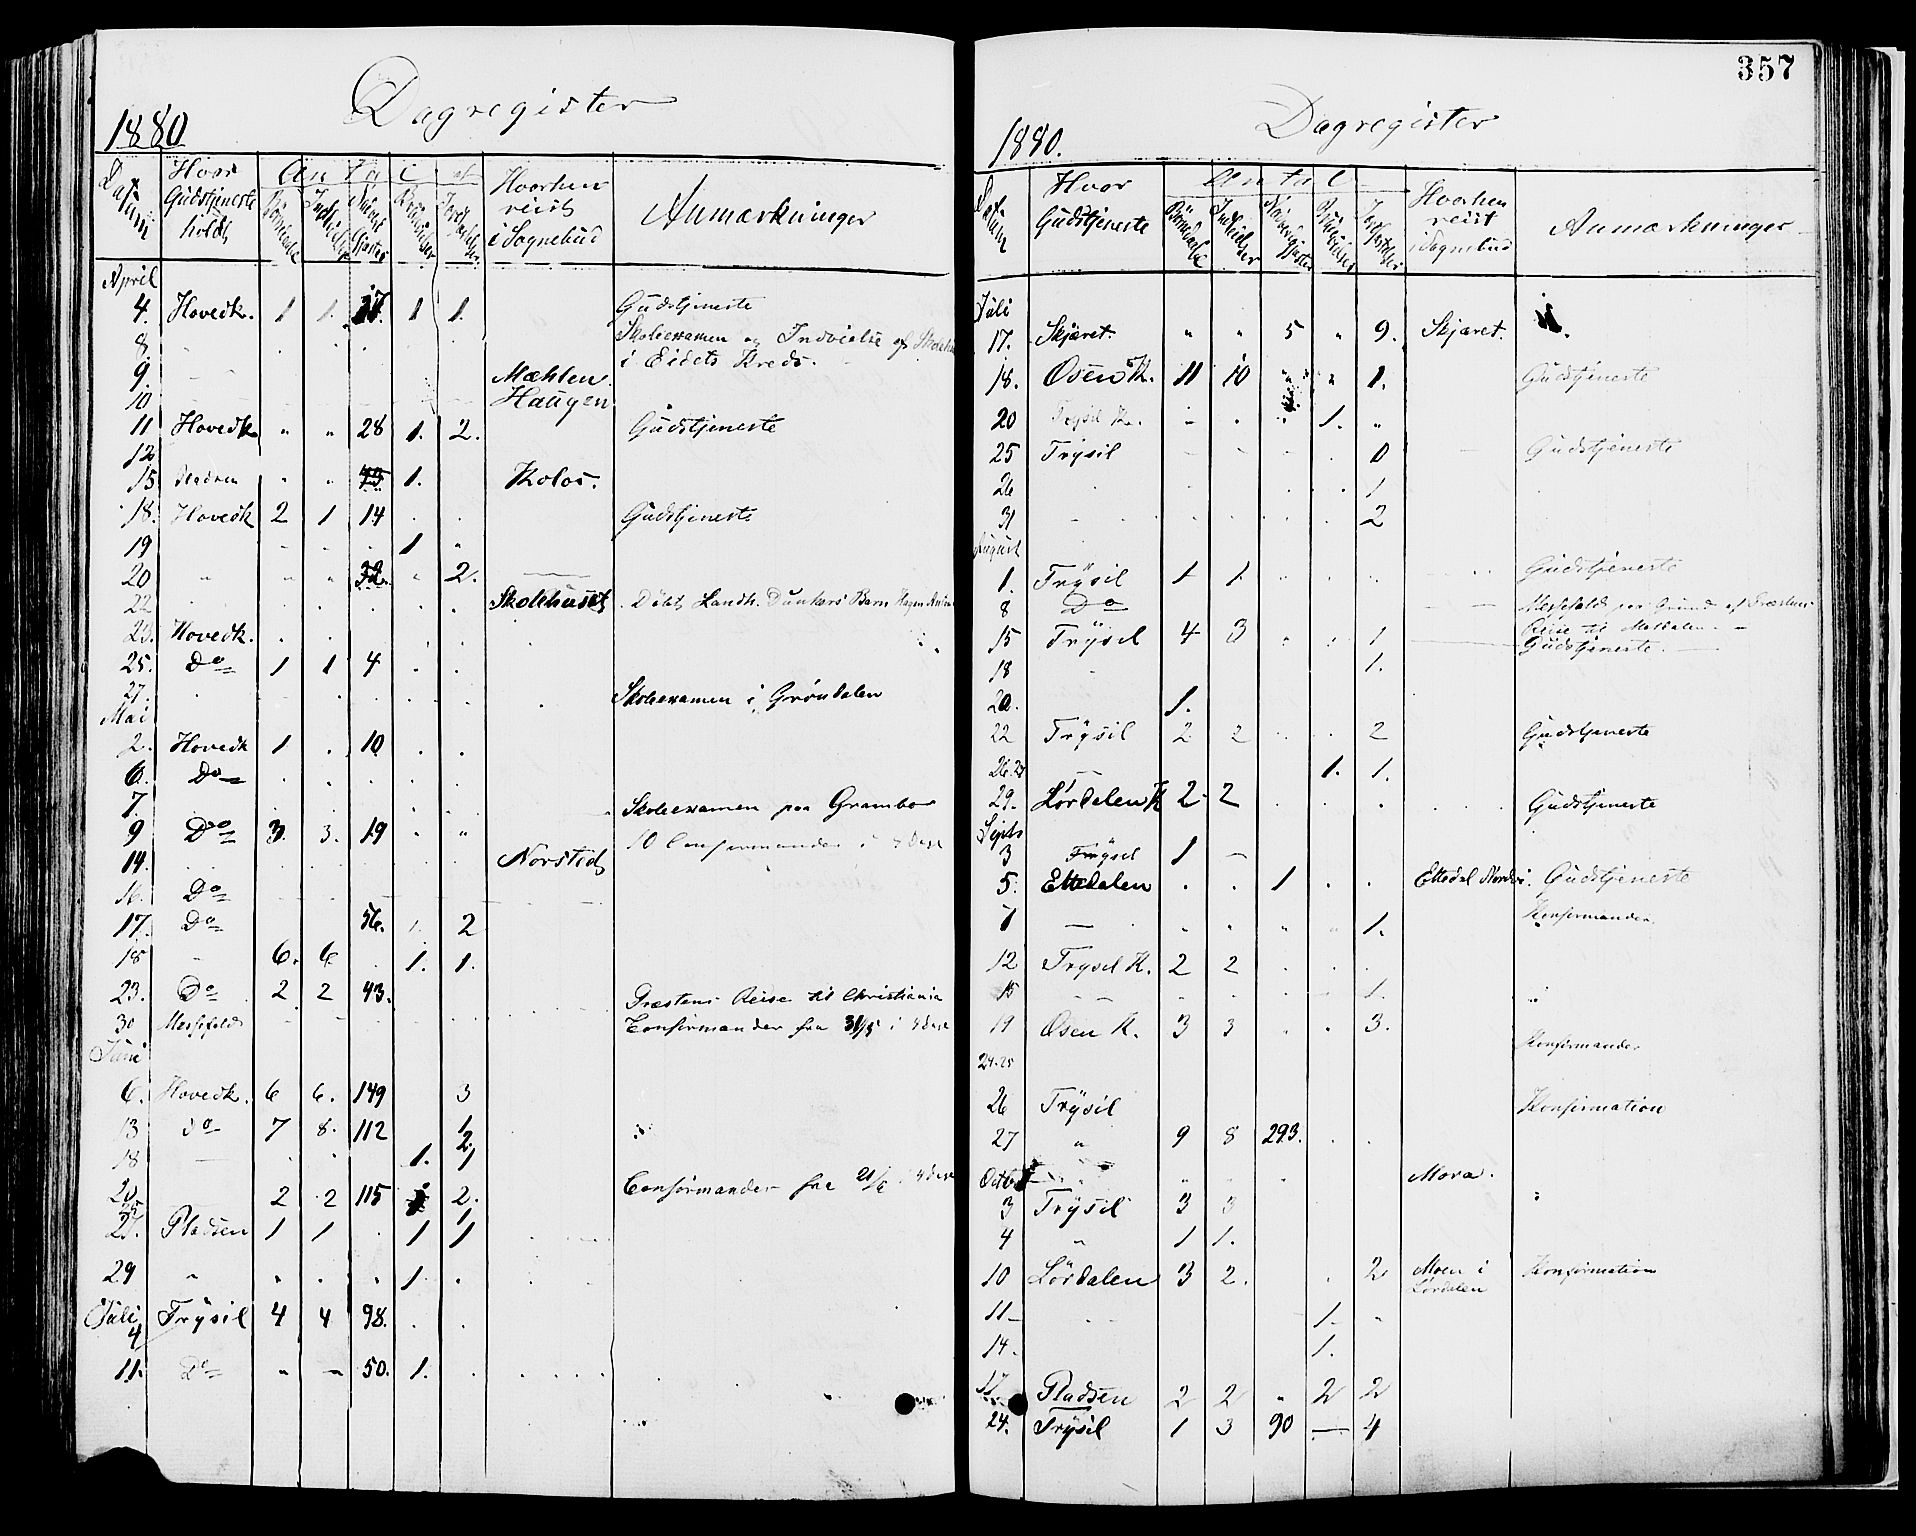 Dagregister
1880
Datum | Hvor Gudstjeneste holdt | Antal af | Hvorhen reist i Sognebud | Anmærkninger
April
4. Hovedk. 1 1. 1 1. Gudstjeneste
8. Skoleexamen og Indvielse af
i Eidets Kreds.
9. Mæhlen
10 Haugen
11 Hovedk. " " 28 1. 2. Gudstjeneste
12
15 " " 1. Kolos.
18. Hovedk 2 1 14 Gudstjeneste
19 1 "
20 " " " 32. " 2.
22 Skolehuset Døbt Landh. Dunkers Barn
23. Hovedk.
25. Do 1 1 4
27. Skoleexamen i Grøndalen
Mai
2. Hovedk 1 . 10
6. Do
7. Skoleexamen paa Grambo
9 Do 3. 3. 19 " " 10 Confirmander i
14. Norsted
16. Do
17. Do 56. 2
18 6. 6 1. 1.
23. Do 2 2 43. Præstens Reise til Christiania
30 Messefald Confirmander fra 31/5 i
Juni
6. Hovedk. 6 6. 149 3
13 do 7 8. 112 1
18 1. 2
20 2 2 115 2. Confirmander fra 21/6
27. Pladsen 1 1 . 1 1
29 " 1.
Juli
4 Trysil 4 4 98.
11. Do " " 50. 1.
357
Dagregister
1880.
Datum | Hvor Gudstjeneste | Antal | Hvorhen reist i Sognebud | Anmærkninger
Juli
17. Skjæret. " " 5 " 9. Skjæret.
18. Osen K. 11 10 " " 1. Gudstjeneste
20 Trysil K. 1. "
25 Trysil 0 Gudstjeneste
26 1
31 2
August
1. Trysil 1 1. Gudstjeneste
8 Do Messefald paa Grund af Præstens
Reise til
15 Trysil 4 3 1 Gudstjeneste
18 1.
20. 1.
22 Trysil 2 2 2 Gudstjeneste
26. 1. 1.
29. Lørdalen K 2 2 Gudstjeneste
Septb
3 Trysil 1 –
5. Ettedalen . . 1 . . Ettedal Gudstjeneste
7 – 1. Konfirmander
12 Trysil K. 2 2
15 1.
19 Osen K. 3 3 3.
24-25 Konfirmander
26 Trysil Konfirmation
27 " 9 8 293.
Octb Mora.
3 Trysil 3 3
4 " 1 1.
10 Lørdalen 3 2. 2 Moen i Konfirmation
Lørdalen
11 1. "
14. 1.
17 Pladsen 2 2 " 2 2
24. Trysil 1 3 90 — 4